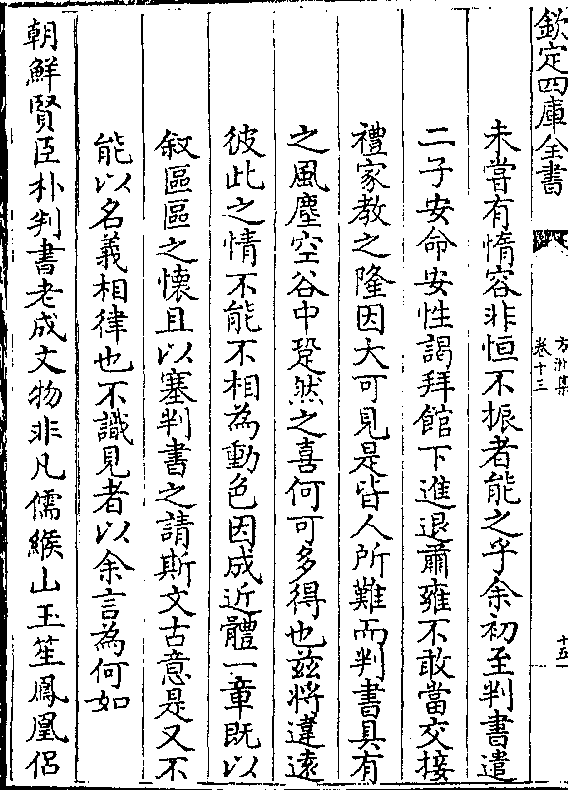 欽定四庫全書
方洲集
卷十三
十五
未嘗有惰容非恒不振者能之乎余初至判書遣
二子安命安性謁拜館下進退肅雍不敢當交接
禮家教之隆因大可見是皆人所難而判書具有
之風塵空谷中跫然之喜何可多得也兹將違遠
彼此之情不能不相為動色因成近體一章既以
叙區區之懐且以塞判書之請斯文古意是又不
能以名義相律也不識見者以余言為何如
朝鮮賢臣朴判書老成文物非凡儒緱山玉笙鳳凰侣